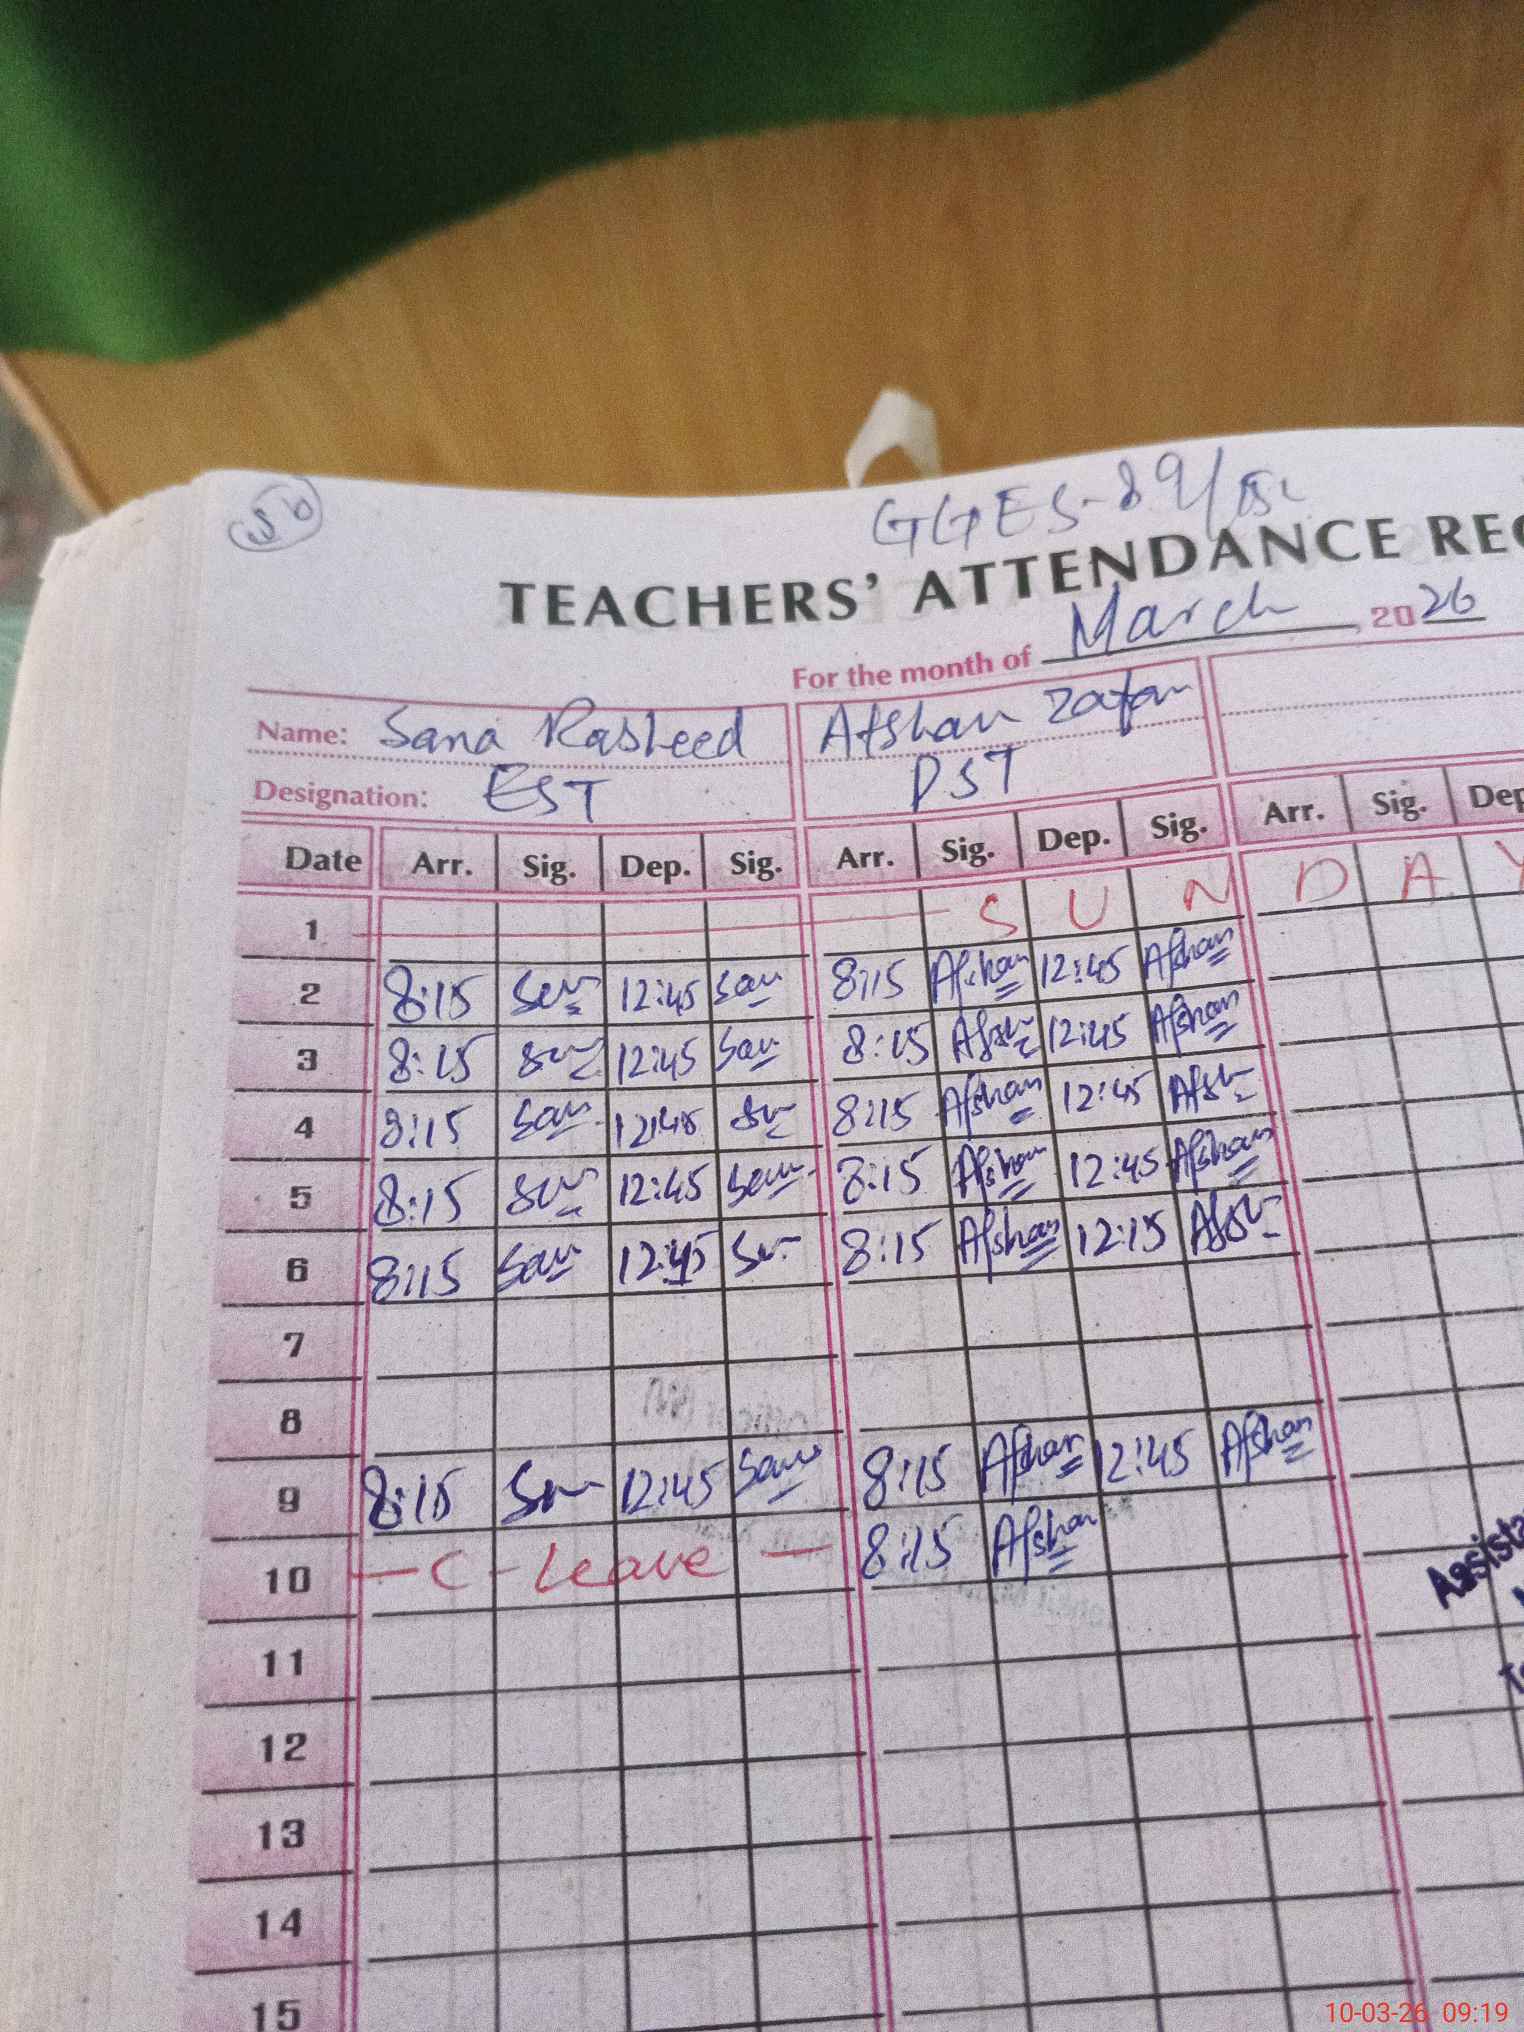 50
GGES-89/15L
TEACHERS' ATTENDANCE REG
For the month of March, 2026
Name: Sana Rasheed Afshan Zafar
Designation: EST PST
Date Arr. Sig. Dep. Sig. Arr. Sig. Dep. Sig. Arr. Sig. Dep
1 S U N D A Y
2 8:15 San 12:45 San 8:15 Afshan 12:45 Afshan
3 8:15 San 12:45 San 8:15 Afshan 12:45 Afshan
4 8:15 San 12:45 San 8:15 Afshan 12:45 Afshan
5 8:15 San 12:45 San 8:15 Afshan 12:45 Afshan
6 8:15 San 12:45 San 8:15 Afshan 12:15 Afshan
7
8
9 8:15 San 12:45 Sana 8:15 Afshan 12:45 Afshan
10 — C - Leave — 8:15 Afshan
Assista
11
12
13
14
15
10-03-26 09:19